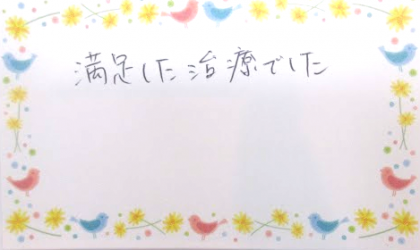 満足した治療でした